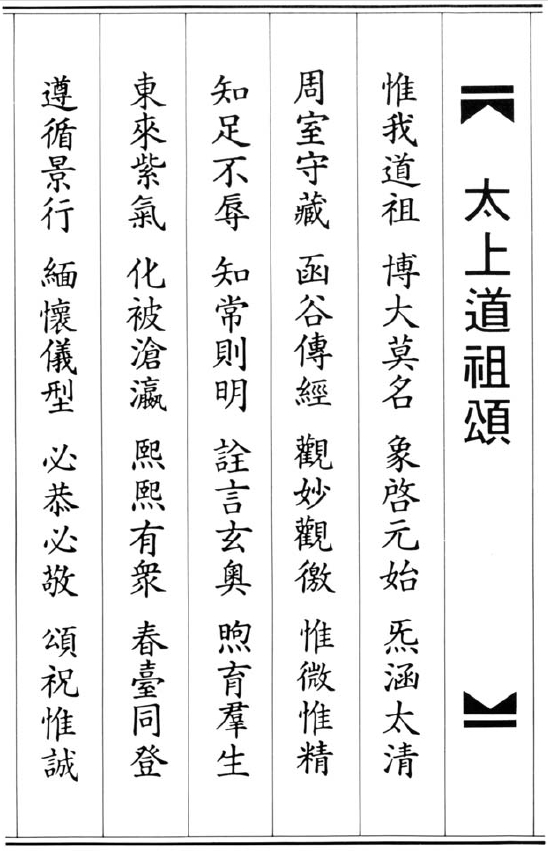 太上道祖頌
惟我道祖 博大莫名 象啓元始 炁涵太清
周室守藏 函谷傳經 觀妙觀徼 惟微惟精
知足不辱 知常則明 詮言玄奥 煦育羣生
東來紫氣 化被滄瀛 熙熙有衆 春臺同登
遵循景行 緬懷儀型 必恭必敬 頌祝惟誠